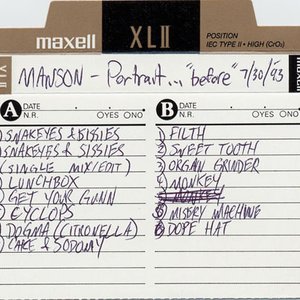 maxell XLII POSITION
IEC TYPE II • HIGH (CrO₂)
XLII
MANSON - Portrait... "before" 7/30/93
A DATE
N.R. OYES ONO
SNAKEYES & SISSIES
SNAKEYES & SISSIES
(SINGLE MIX/EDIT)
LUNCHBOX
GET YOUR GUNN
CYCLOPS
DOGMA (CITRONELLA)
CAKE & SODOMY
B DATE
N.R. OYES ONO
1 FILTH
2 SWEET TOOTH
3 ORGAN GRINDER
4 MONKEY
5 MISERY MACHINE
6 DOPE HAT